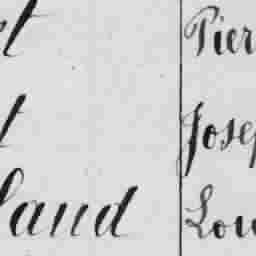 t Pier
t Josep
land Lou